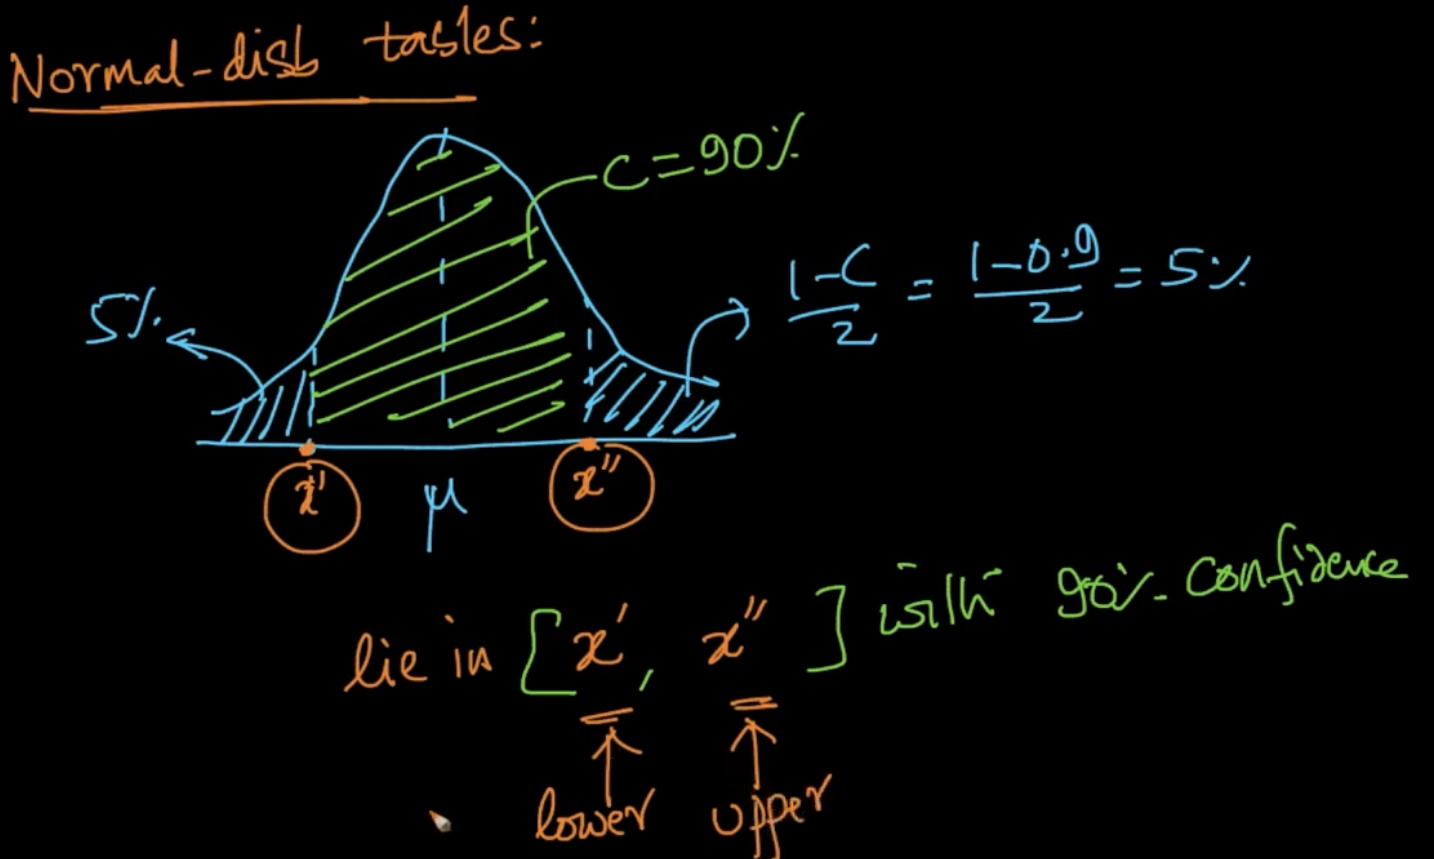 Normal-disb tables:
C=90%
5%
1-C/2 = 1-0.9/2 = 5%
x' μ x"
lie in [x', x"] with 90% confidence
lower upper